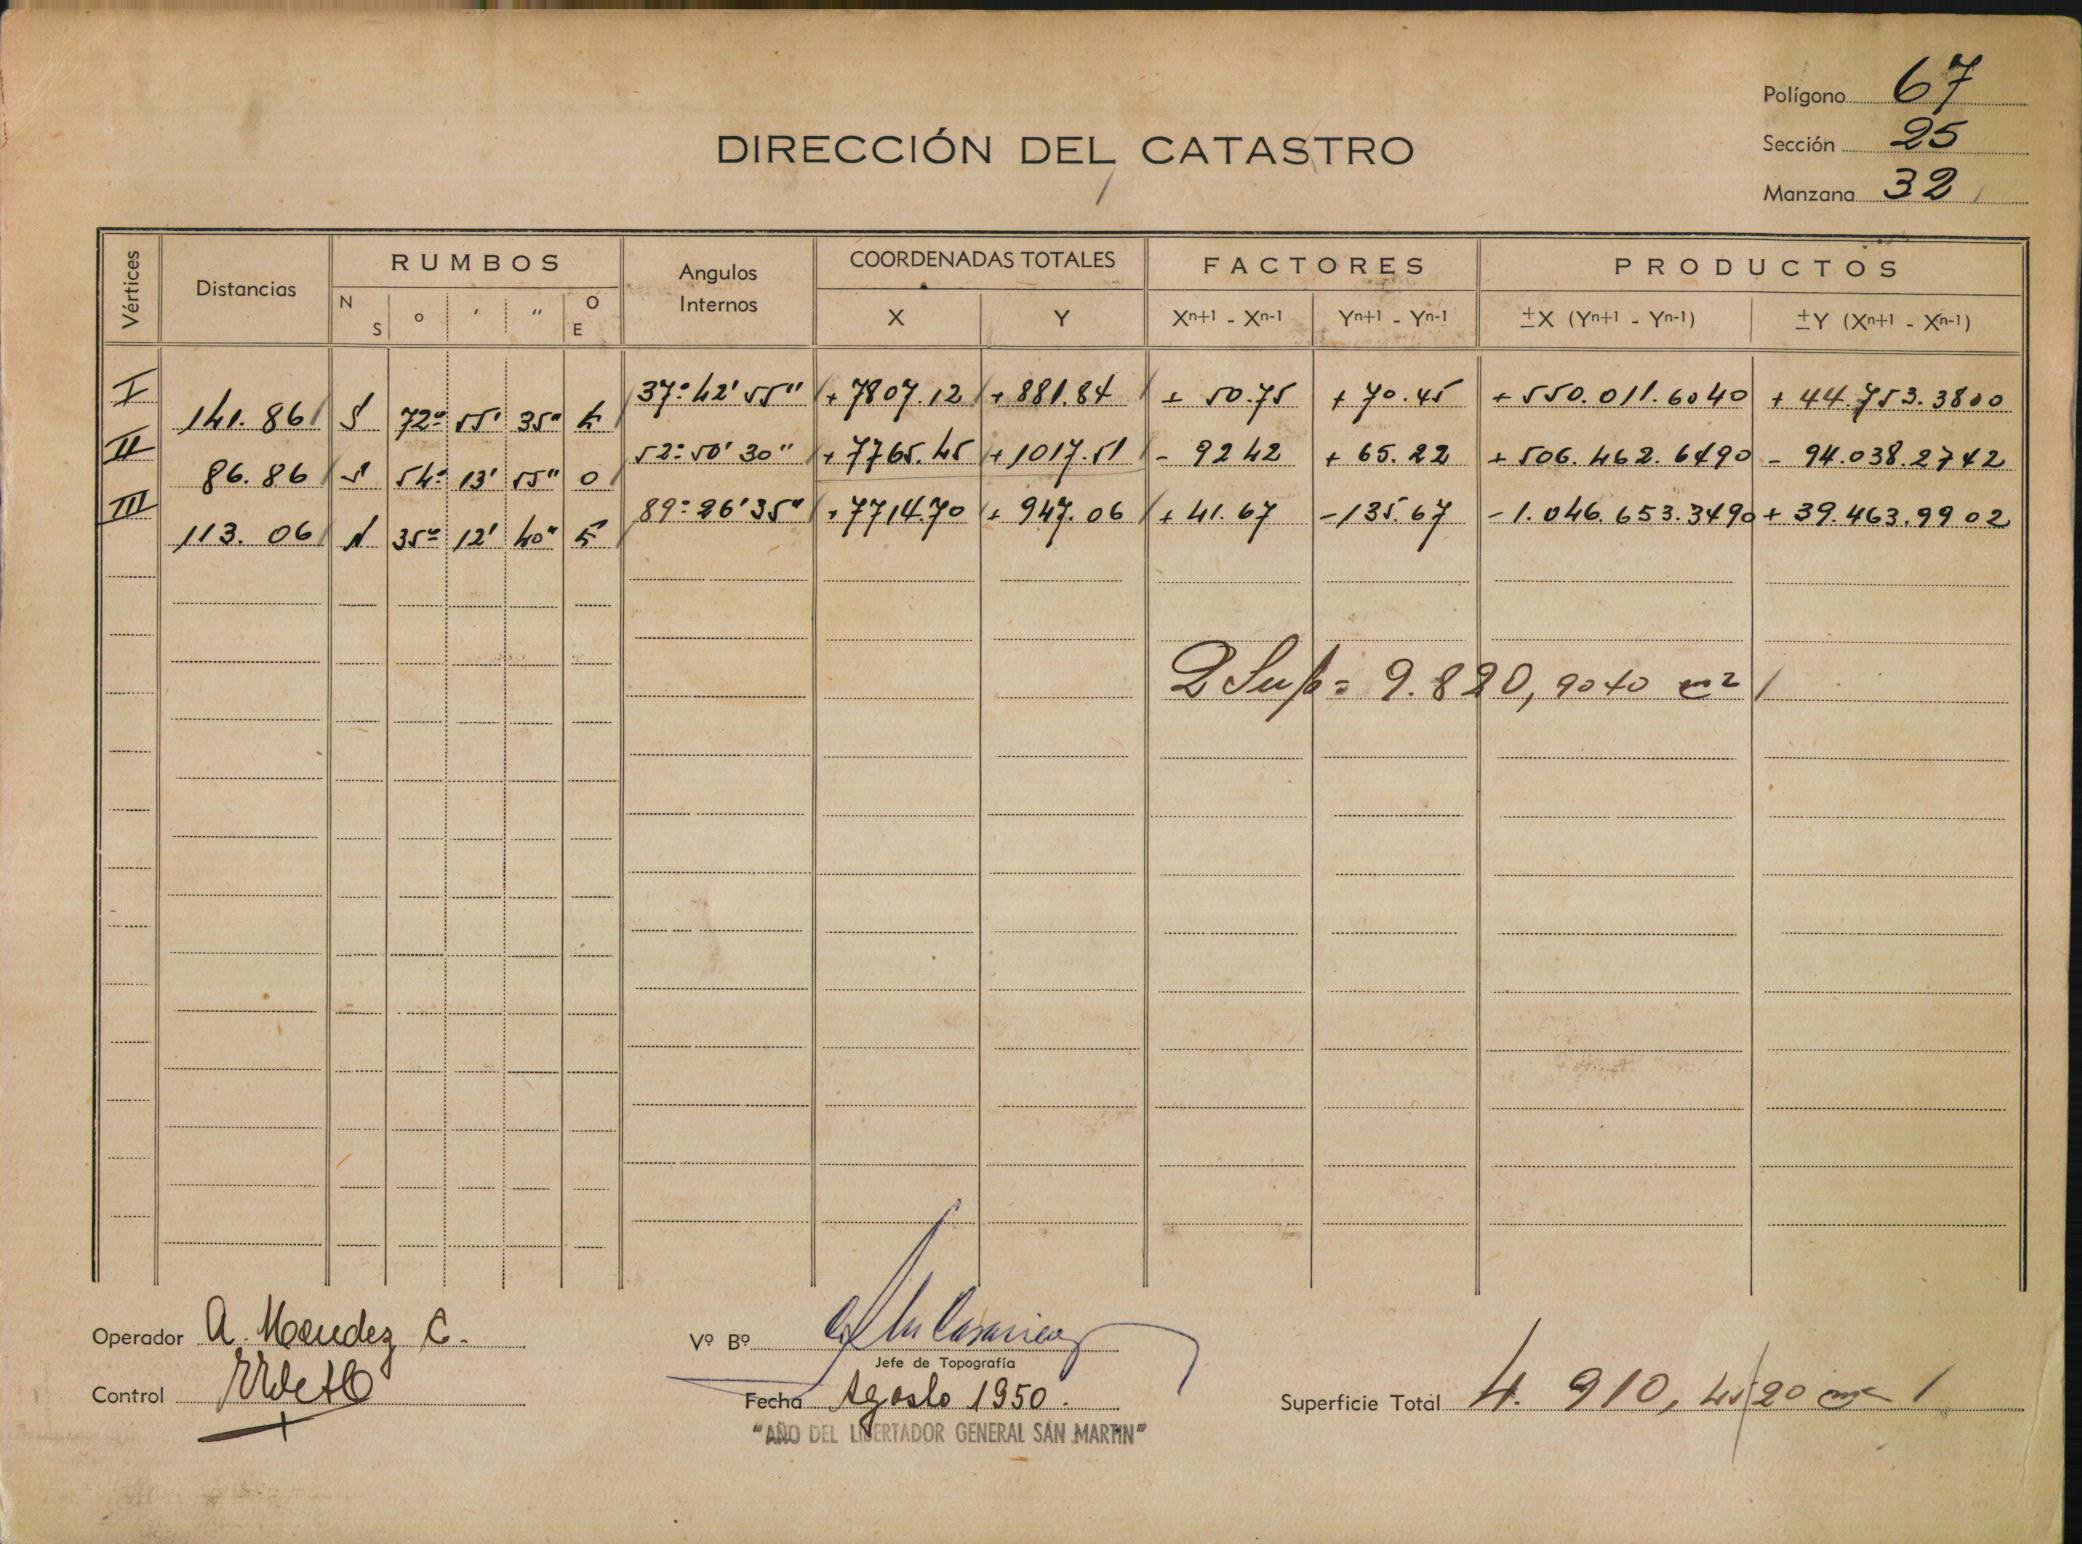 Polígono 67
DIRECCIÓN DEL CATASTRO
Sección 25
Manzana 32
Vértices Distancias RUMBOS Angulos Internos COORDENADAS TOTALES FACTORES PRODUCTOS
N S ° ' " O E X Y Xn+1 - Xn-1 Yn+1 - Yn-1 ±X (Yn+1 - Yn-1) ±Y (Xn+1 - Xn-1)
I 37° 42' 55" + 7807.12 + 881.84 + 50.75 + 70.45 + 550.011.6040 + 44.753.3800
141.86 S 72° 55' 35" E
II 52° 50' 30" + 7765.45 + 1017.51 - 92 42 + 65.22 + 506.462.6490 - 94.038.2742
86.86 S 54° 13' 55" O
III 89° 26' 35" + 7714.70 + 947.06 + 41.67 - 135.67 - 1.046.653.3490 + 39.463.9902
113.06 N 35° 12' 40" E
2 Sup = 9.820,9040 m2
Operador A. Mendez C.
Vº Bº
Jefe de Topografía
Control
Fecha Agosto 1950.
Superficie Total 4.910,4520 m2
"AÑO DEL LIBERTADOR GENERAL SAN MARTIN"